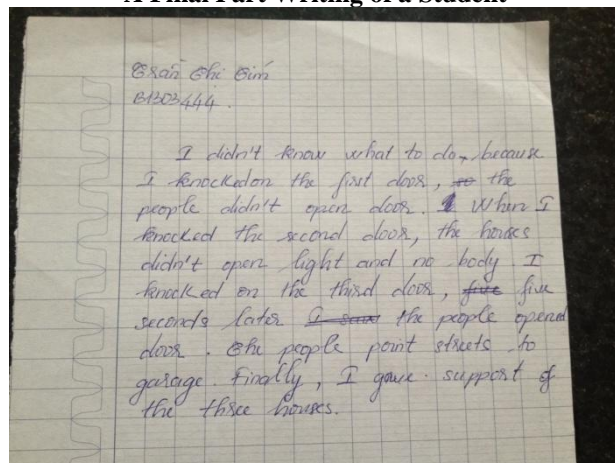 A Final Part Writing of a Student
Trần Thi Tím
B1303444.
I didn't know what to do, because
I knocked on the first door, so the
people didn't open door. I When I
knocked the second door, the houses
didn't open light and no body. I
knocked on the third door, five five
seconds later I saw the people opened
door. The people point streets to
garage. Finally, I gave support of
the three houses.